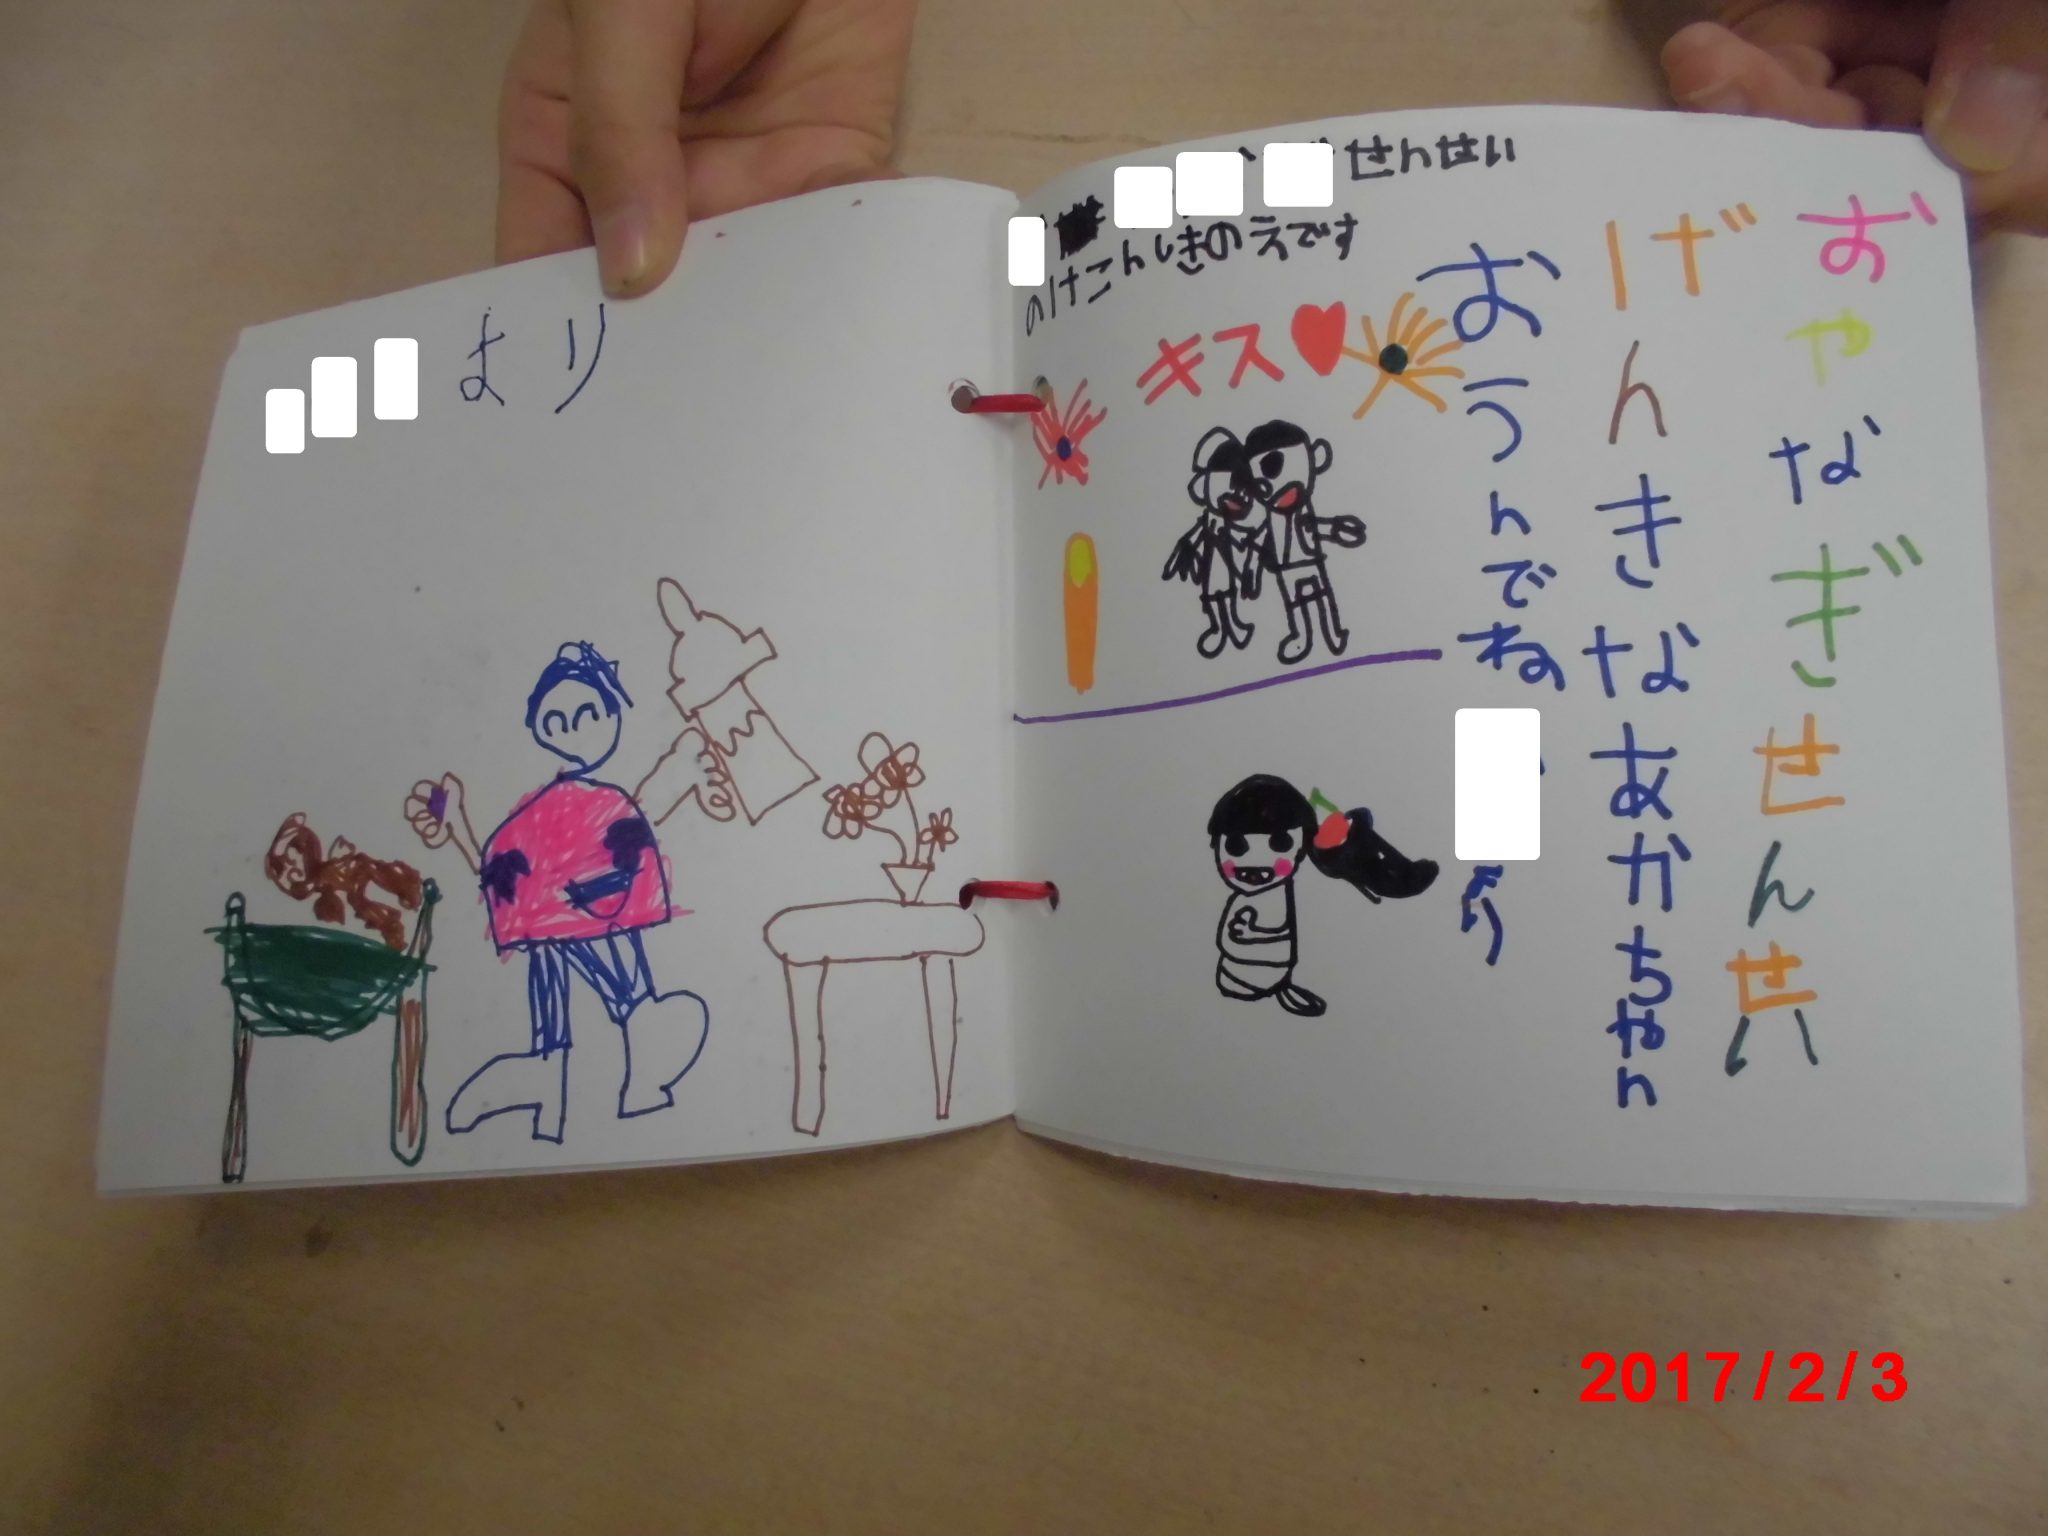 より
せんせい
のけこんしきのえです
キス
おやなぎせんせい
げんきなあかちゃん
おうんでね
より
2017/2/3